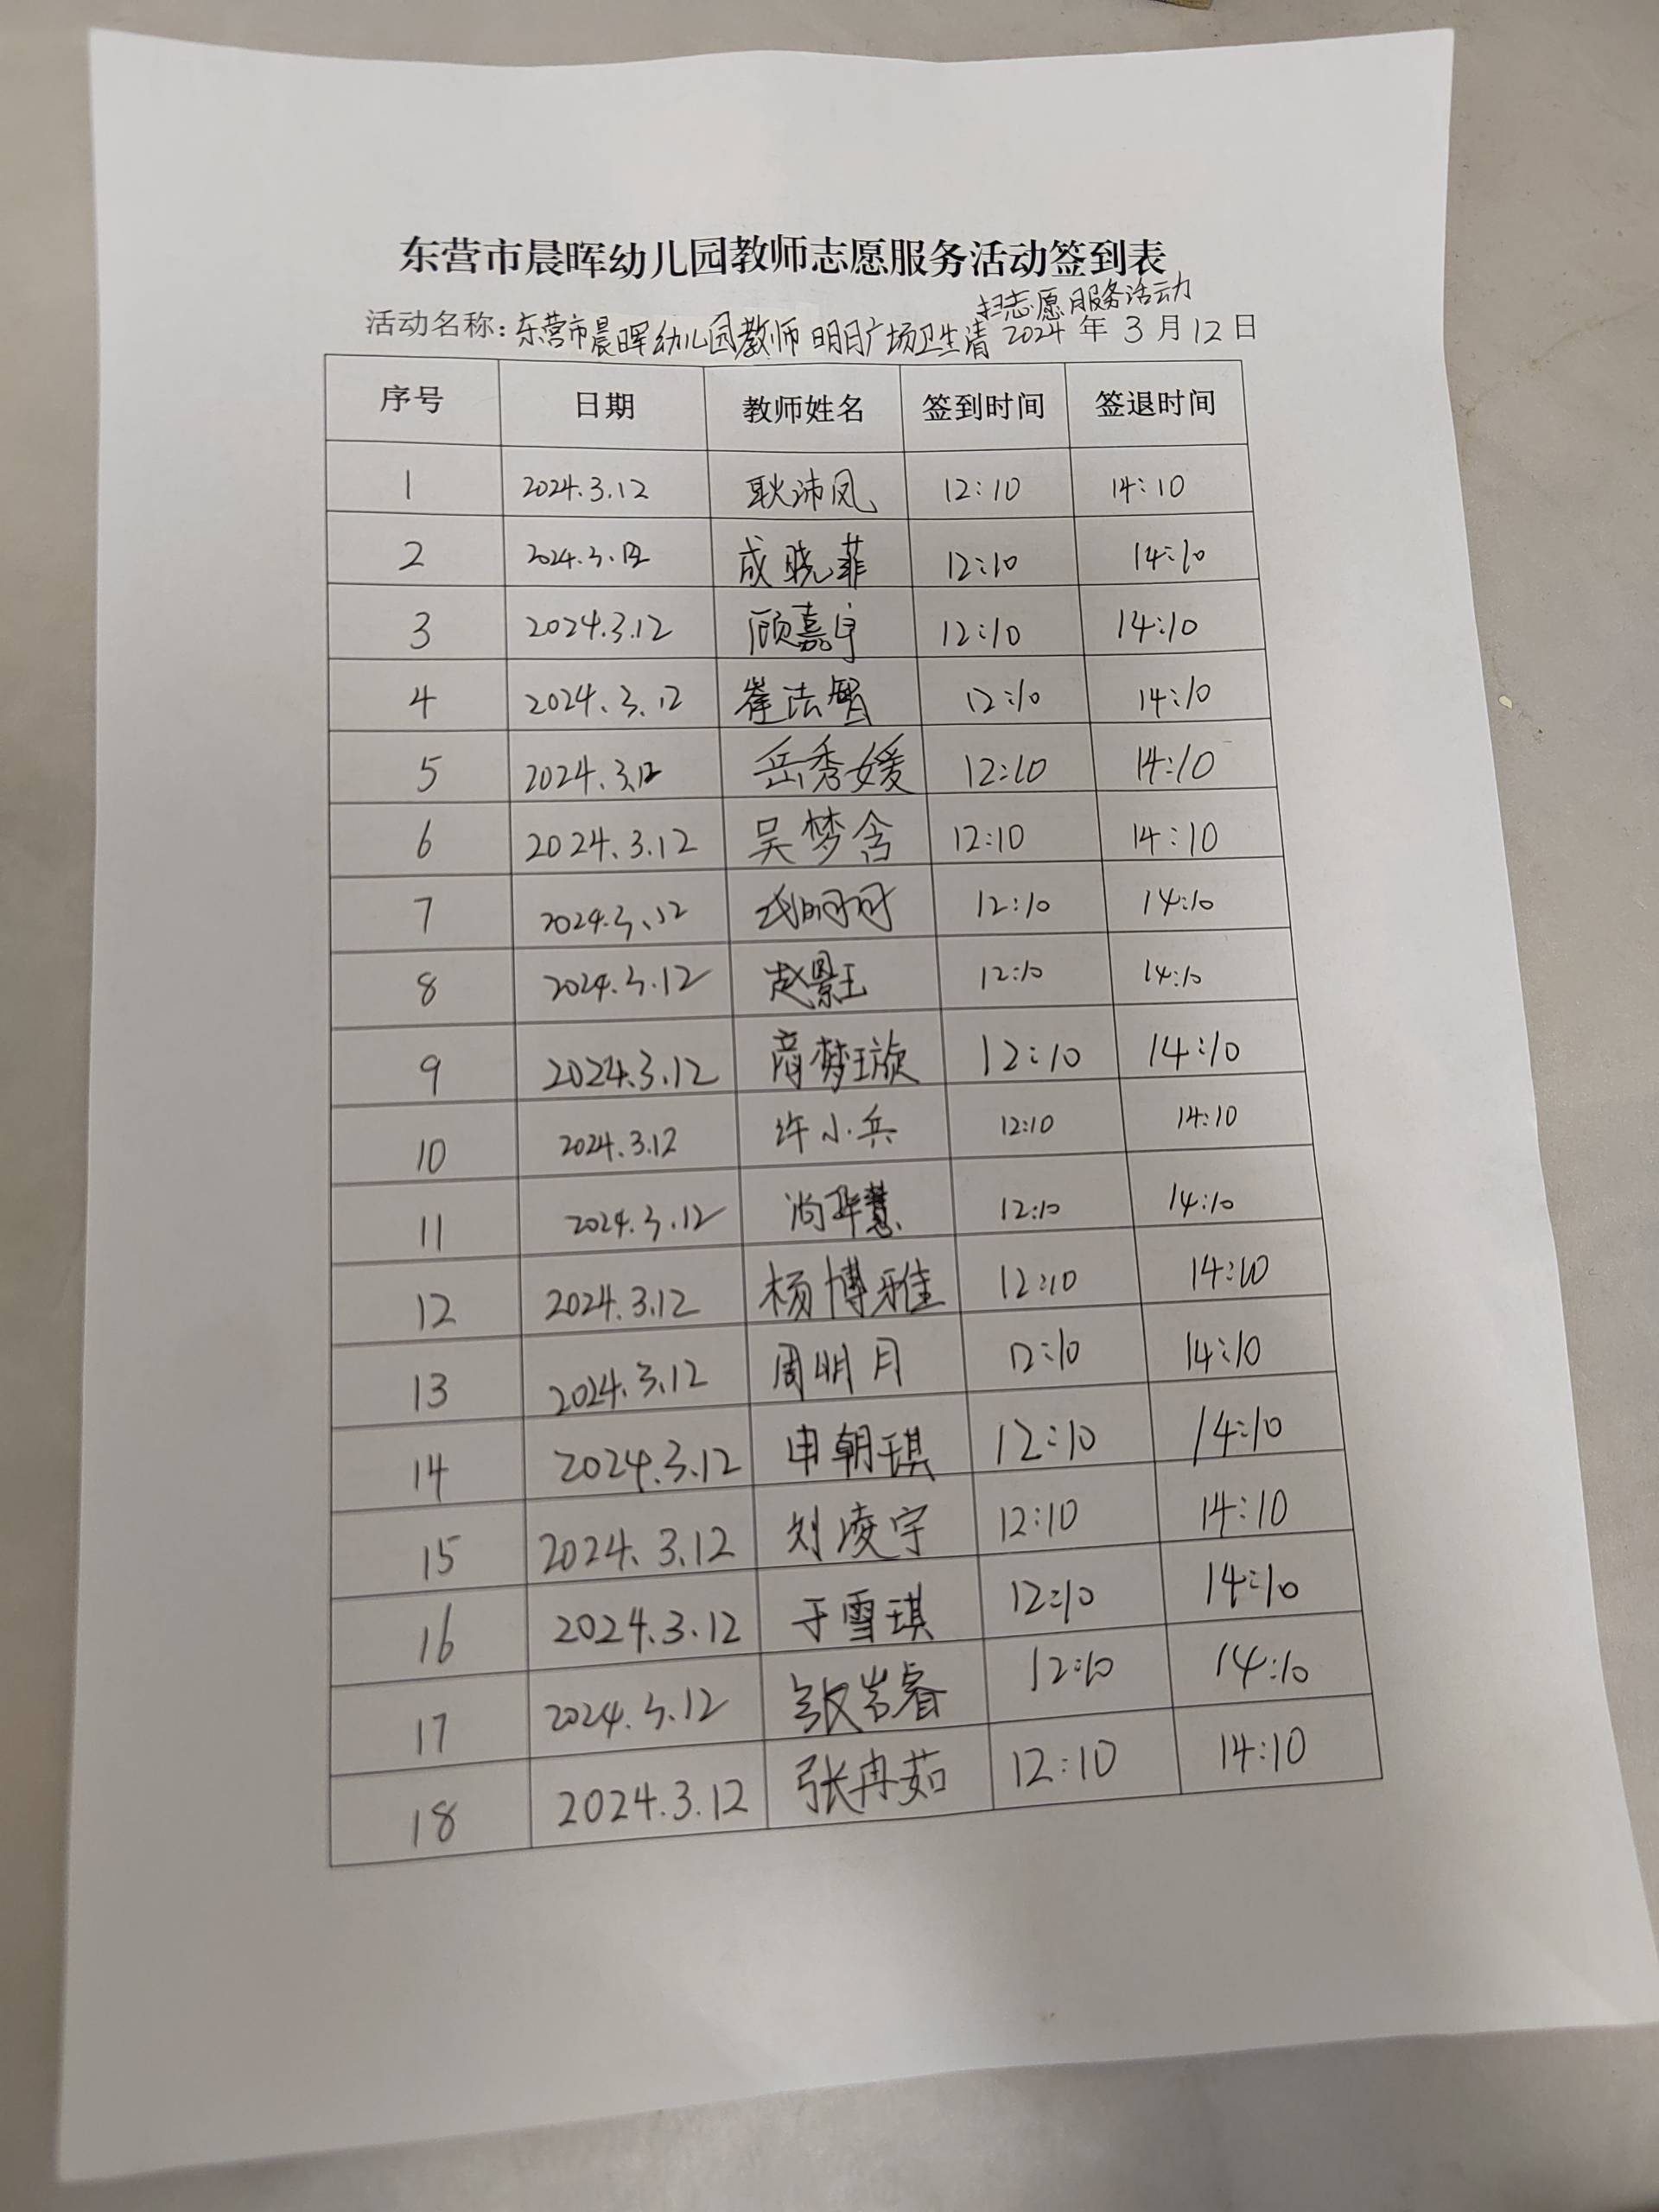 东营市晨晖幼儿园教师志愿服务活动签到表
扫志愿服务活动
活动名称：东营市晨晖幼儿园教师明月广场卫生清 2024 年 3 月 12 日
序号 日期 教师姓名 签到时间 签退时间
1 2024.3.12 耿沛凤 12:10 14:10
2 2024.3.12 成晓菲 12:10 14:10
3 2024.3.12 顾嘉宇 12:10 14:10
4 2024.3.12 崔法智 12:10 14:10
5 2024.3.12 岳秀媛 12:10 14:10
6 2024.3.12 吴梦含 12:10 14:10
7 2024.3.12 12:10 14:10
8 2024.3.12 赵景玉 12:10 14:10
9 2024.3.12 商梦璇 12:10 14:10
10 2024.3.12 许小兵 12:10 14:10
11 2024.3.12 尚华慧 12:10 14:10
12 2024.3.12 杨博雅 12:10 14:10
13 2024.3.12 周明月 12:10 14:10
14 2024.3.12 申朝琪 12:10 14:10
15 2024.3.12 刘凌宇 12:10 14:10
16 2024.3.12 于雪琪 12:10 14:10
17 2024.3.12 张岩睿 12:10 14:10
18 2024.3.12 张冉茹 12:10 14:10